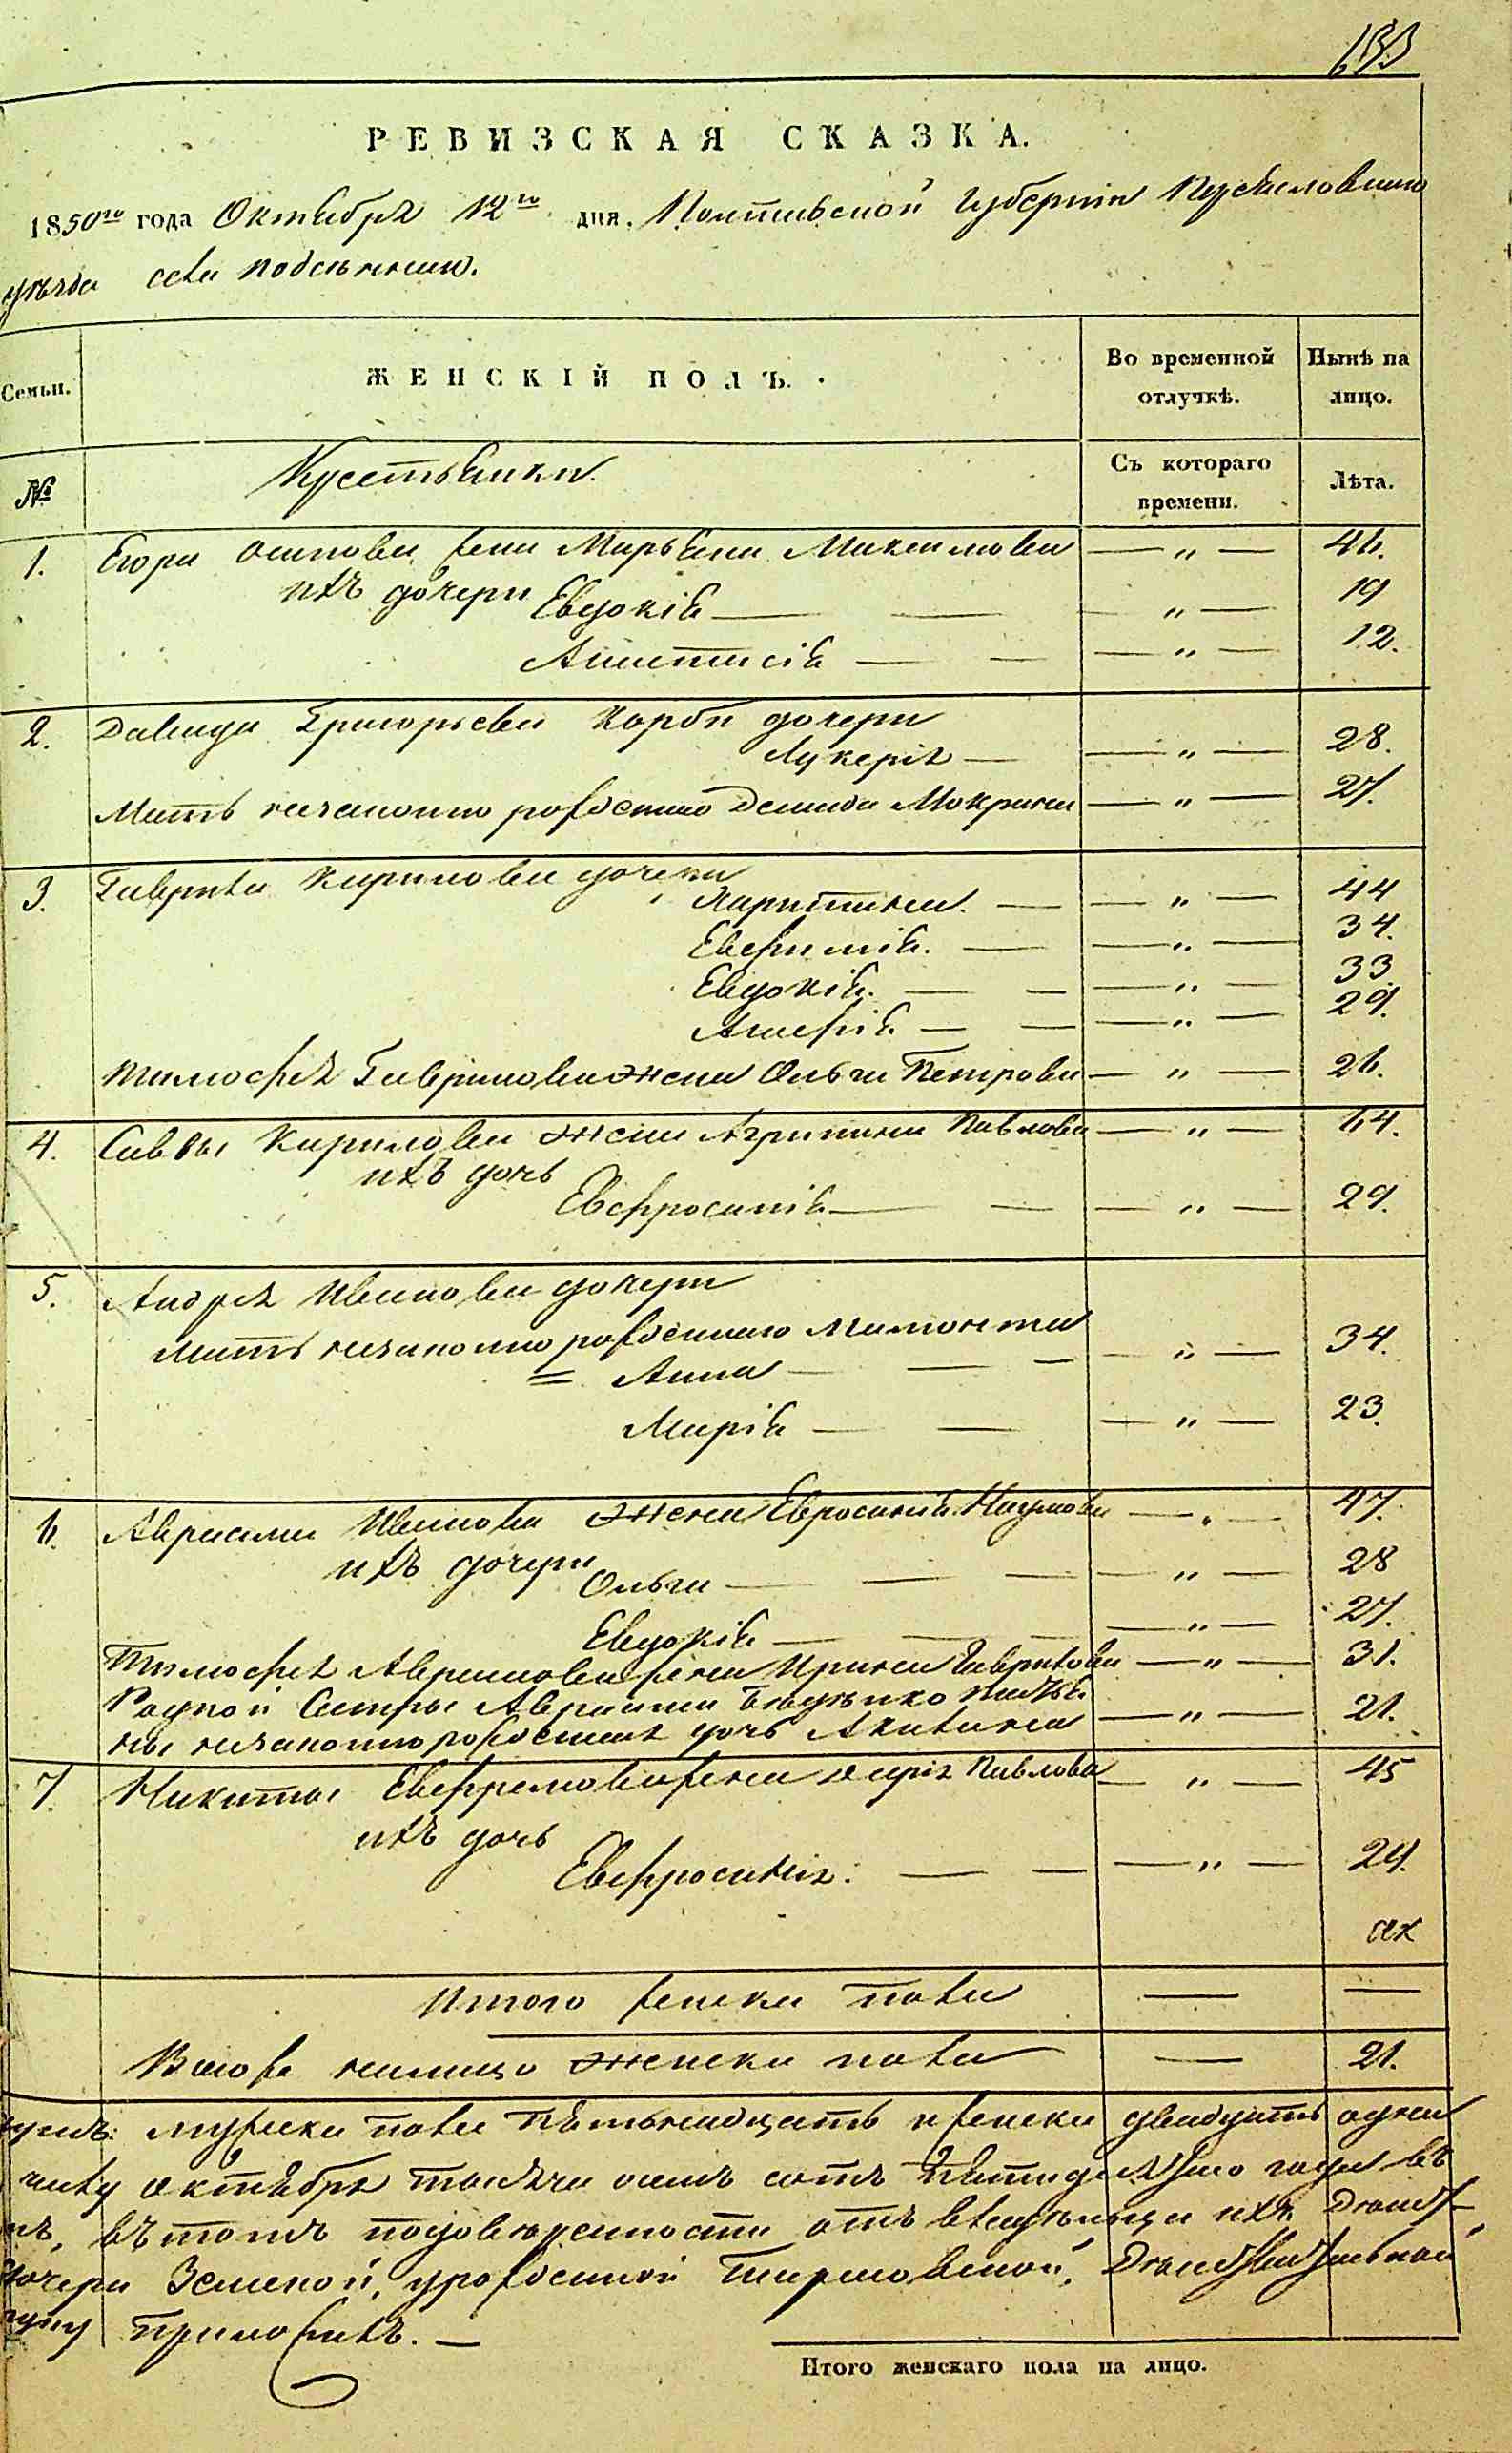 РЕВИЗСКАЯ СКАЗКА.
1850го года Октября 12го дня. Полтавской Губерніи Переясловскаго
уѣзда села подсѣннаго.
Семьи. ЖЕНСКІЙ ПОЛЪ. Во временной отлучкѣ. Нынѣ на лицо.
№ Крестьянки. Съ котораго времени. Лѣта.
1. Егора осипова жена Марьяна Максимова — „ — 46.
ихъ дочери Евдокія — „ — 19
Анастасія — „ — 12.
2. Давида Григорьева дочери
Лукерія — „ — 28.
Мать незаконно рожденнаго Демида Мокрина — „ — 27.
3. Гаврила Кирилова дочери
Харитина. — „ — 44
Евфимія. — „ — 34.
Евдокія. — „ — 33
— „ — 29.
Тимофея Гаврилова жена Ольга Петрова — „ — 26.
4. Саввы Кирилова жена Агрипина Павлова — „ — 64.
ихъ дочь
Евфросинія — „ — 29.
5. Андрея Иванова дочери
мать незаконно рожденнаго Мамонта
Анна — „ — 34.
Марія — „ — 23.
6. Аврама Иванова жена Евросинія Наумова — „ — 47.
ихъ дочери Ольга — „ — 28
Евдокія — „ — 27.
Тимофея Аврамова жена Ирина Гаврилова — „ — 31.
Родной Сестры Аврама
ны незаконно рожденная дочь Акилина — „ — 21.
7. Никиты Евфремова жена Дарія Павлова — „ — 45
ихъ дочь
Евфросинія: — „ — 24.
Итого женска пола — —
Вможе налицо женска пола — 21.
мужска пола пятьнадцать и женска двадцать одна
октября тысяча осмъ сотъ пятидесятаго года въ
въ томъ подовюренности отъ владѣлицы ихъ
дочери урожденной
приложихъ. —
Итого женскаго пола на лицо.